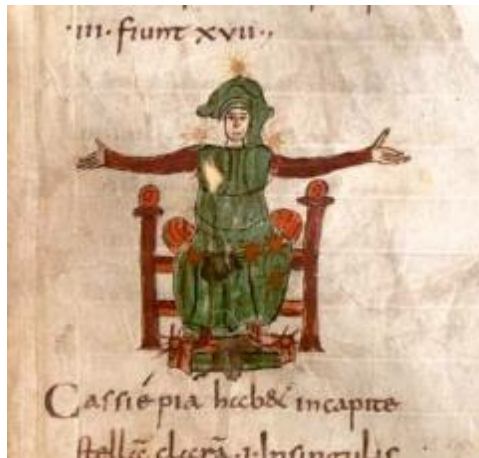 ·III· fiunt xvii·,
Cassiépia hab& incapite
stellā clarā ·I· Insingulis